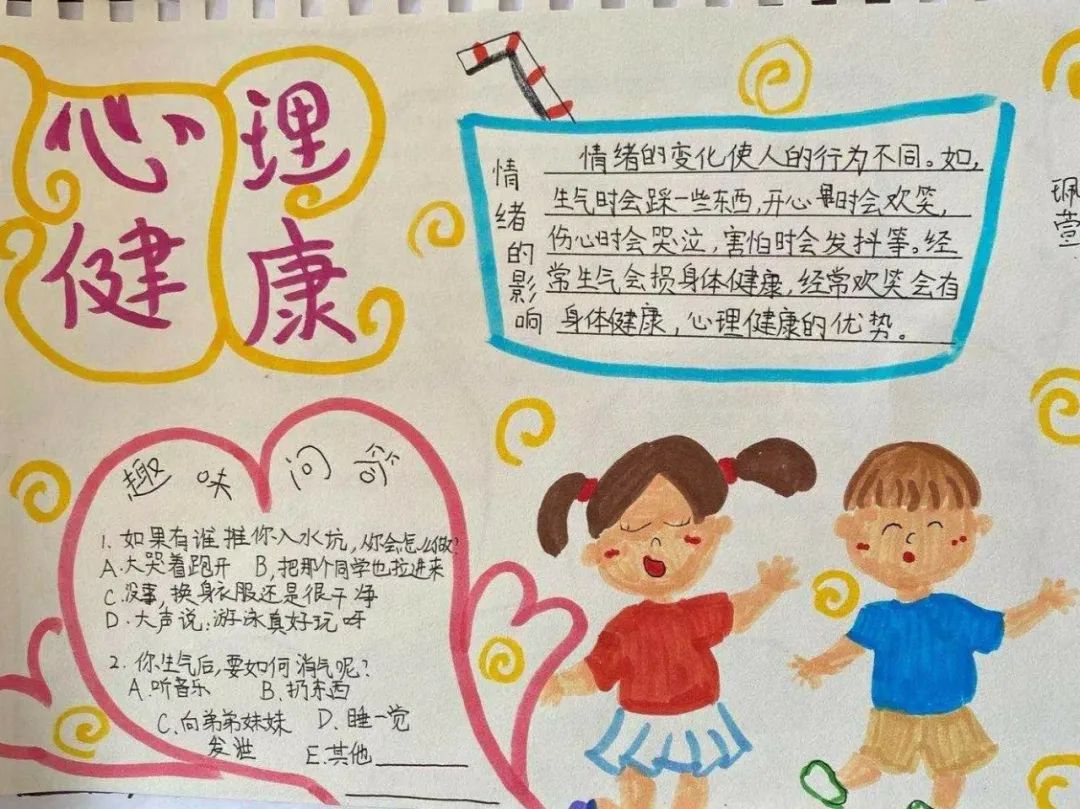 心理
健康
情绪的影响
情绪的变化使人的行为不同。如,
生气时会踩一些东西,开心时会欢笑,
伤心时会哭泣,害怕时会发抖等。经
常生气会损身体健康,经常欢笑会有
身体健康,心理健康的优势。
珮萱
趣味问答
1. 如果有谁推你入水坑,你会怎么做?
A. 大哭着跑开 B, 把那个同学也拉进来
C. 没事,换身衣服还是很干净
D. 大声说:游泳真好玩呀
2. 你生气后,要如何消气呢?
A. 听音乐 B. 扔东西
C. 向弟弟妹妹 D. 睡一觉
发泄 E. 其他